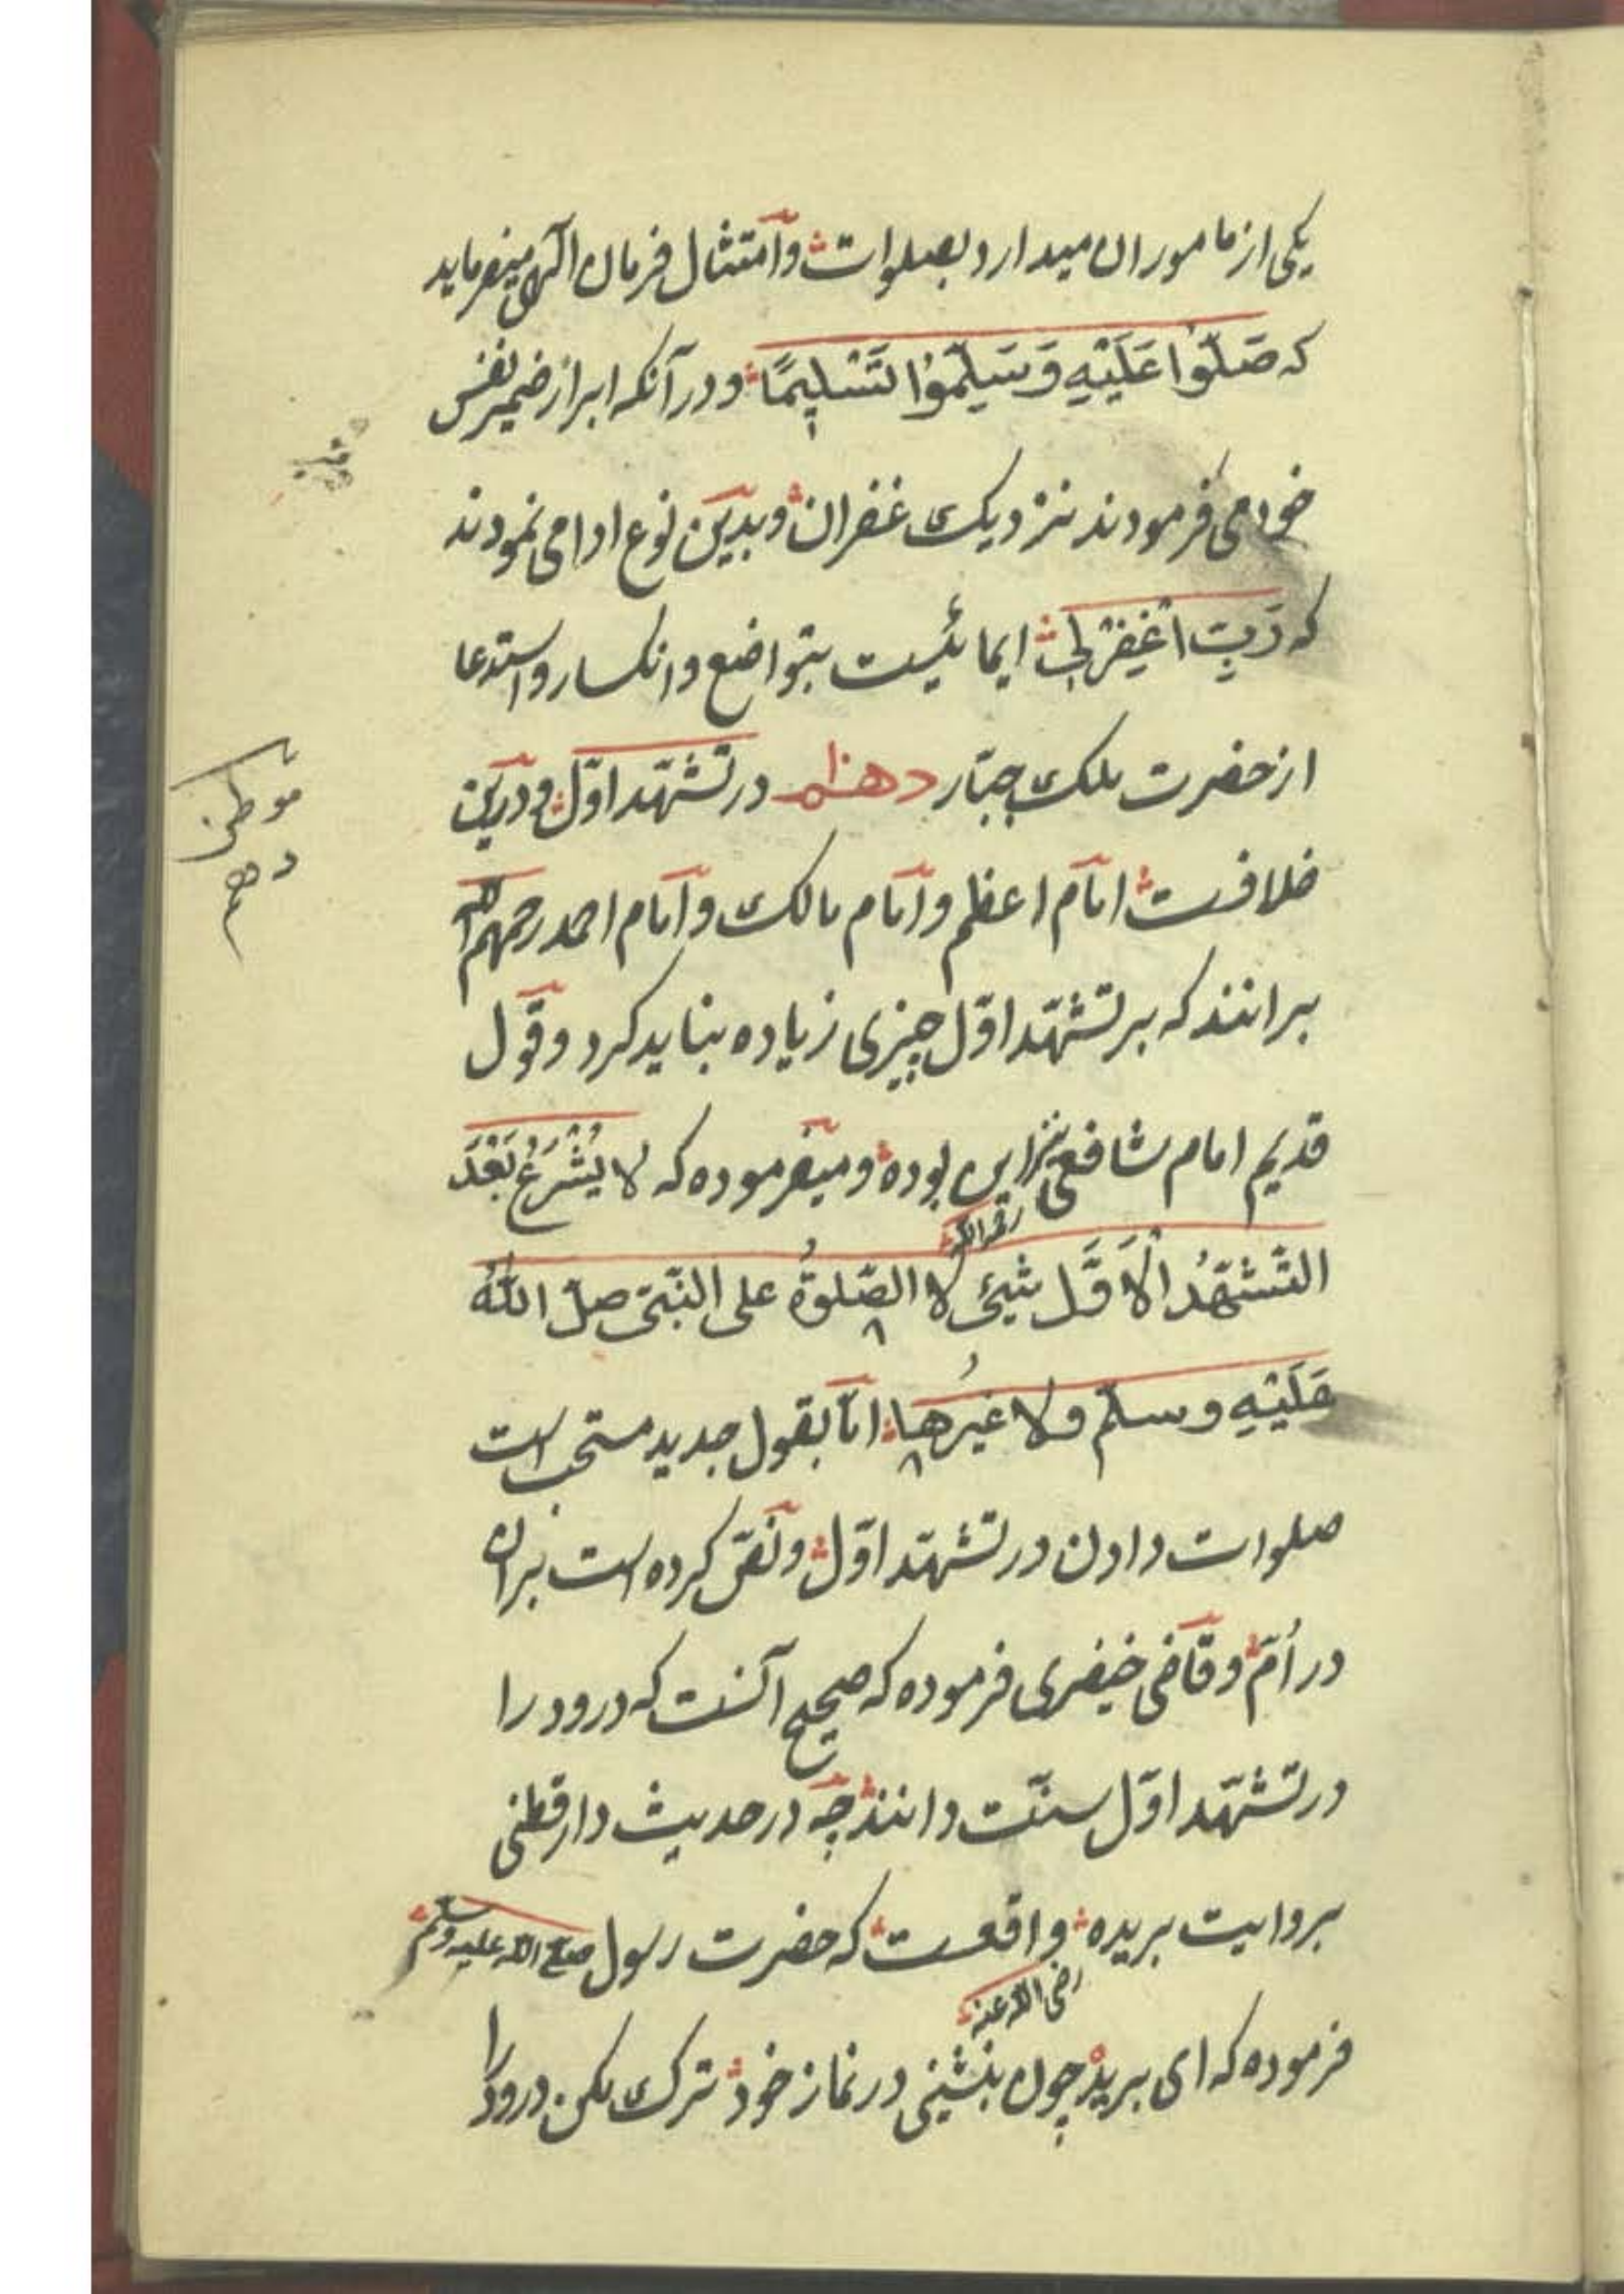 یکی از ماموران میدارد بصلوات و امتثال فرمان الهی میفرماید
که صَلُّوا عَلَیْهِ وَسَلِّمُوا تَسْلِیمًا و در آنکه ابراز ضمیر نفس
خود می فرمودند نزدیک غفران و بدین نوع ادا می نمودند
که رَبِّ اغْفِرْ لِی ایمائیست بتواضع و انکسار و استدعا
از حضرت ملک جبّار دهم در تشهّد اوّل و درین
خلافست امام اعظم و امام مالک و امام احمد رحمهم الله
برانند که بر تشهّد اوّل چیزی زیاده نباید کرد و قول
قدیم امام شافعی رحمه الله نیز این بوده و میفرموده که لا یُشْرَعُ بَعْدَ
التّشهّدُ الاَوَّل شیئ لا الصّلوةُ علی النّبیّ صلّ اللهُ
عَلَیْهِ وسلّم ولا غیرُها امّا بقول جدید مستحب است
صلوات دادن در تشهّد اوّل و نصّ کرده است بران
در اُمّ و قاضی خیضری فرموده که صحیح آنست که درود را
در تشهّد اوّل سنّت دانند چه در حدیث دارقطنی
بروایت بریده رضی الله عنه واقعست که حضرت رسول صلی الله علیه وسلم
فرموده که ای بریده چون بنشینی در نماز خود ترک مکن درود را
موطن
دهم